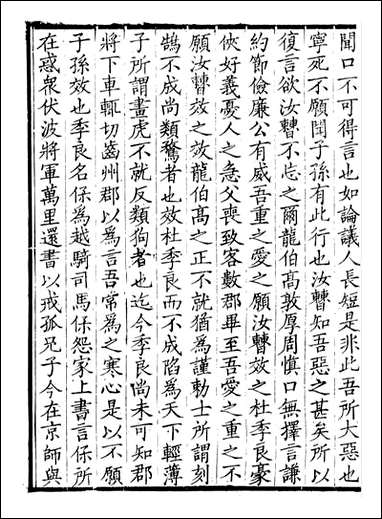 聞口不可得言也如論議人長短是非此吾所大惡也
寧死不願聞子孫有此行也汝曹知吾惡之甚矣所以
復言欲汝曹不忘之爾龍伯髙敦厚周慎口無擇言謙
約節儉亷公有威吾重之愛之願汝曹效之杜季良豪
俠好義憂人之急父喪致客數郡畢至吾愛之重之不
願汝曹效之效龍伯髙之正不就猶為謹勅士所謂刻
鵠不成尚類騖者也效杜季良而不成䧟為天下輕薄
子所謂畫虎不就反類狗者也迄今季良尚未可知郡
將下車輒切齒州郡以為言吾常為之寒心是以不願
子孫效也季良名保為越騎司馬保怨家上書言保所
在惑衆伏波將軍萬里還書以戒孤兄子今在京師與